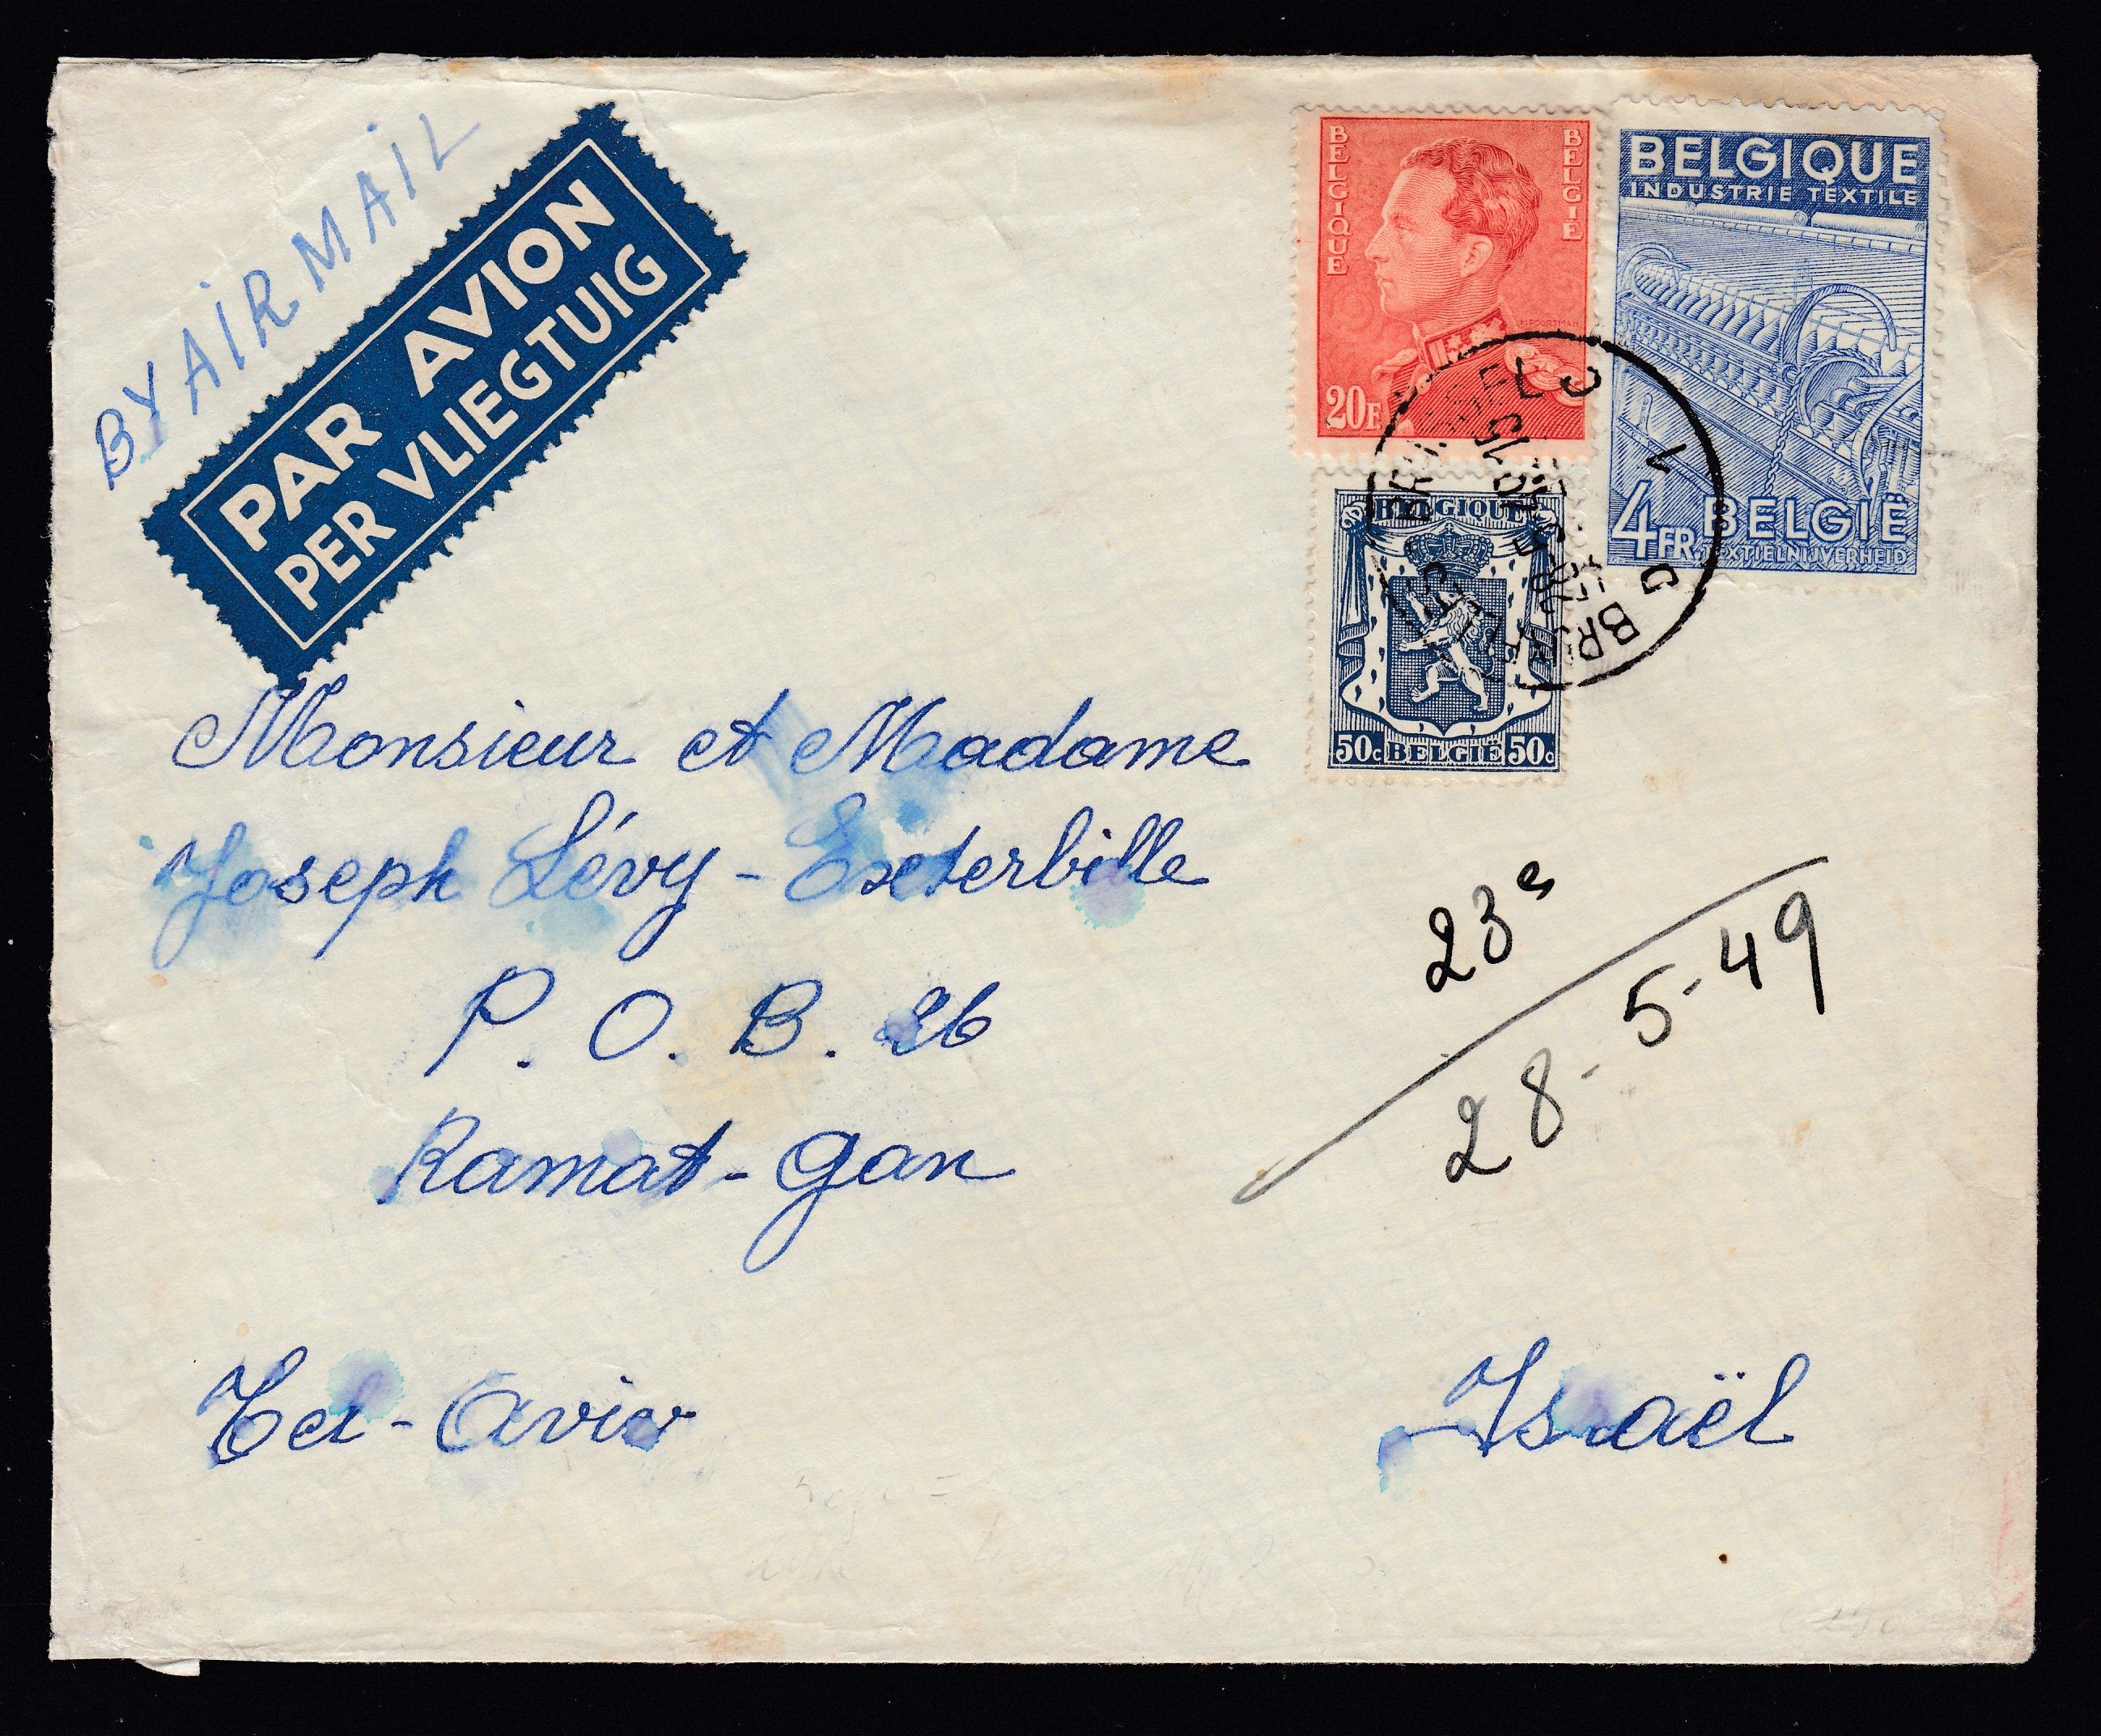 BY AIR MAIL
PAR AVION
PER VLIEGTUIG
BELGIQUE
BELGIE
20F
BELGIQUE
INDUSTRIE TEXTILE
4FR. BELGIË
TEXTIELNIJVERHEID
BELGIQUE
50c BELGIË 50c
Monsieur et Madame
Joseph Lévy - Exterbille
P. O. B. 26
Ramat-Gan
Tel-Aviv
Israël
23e
28-5-49